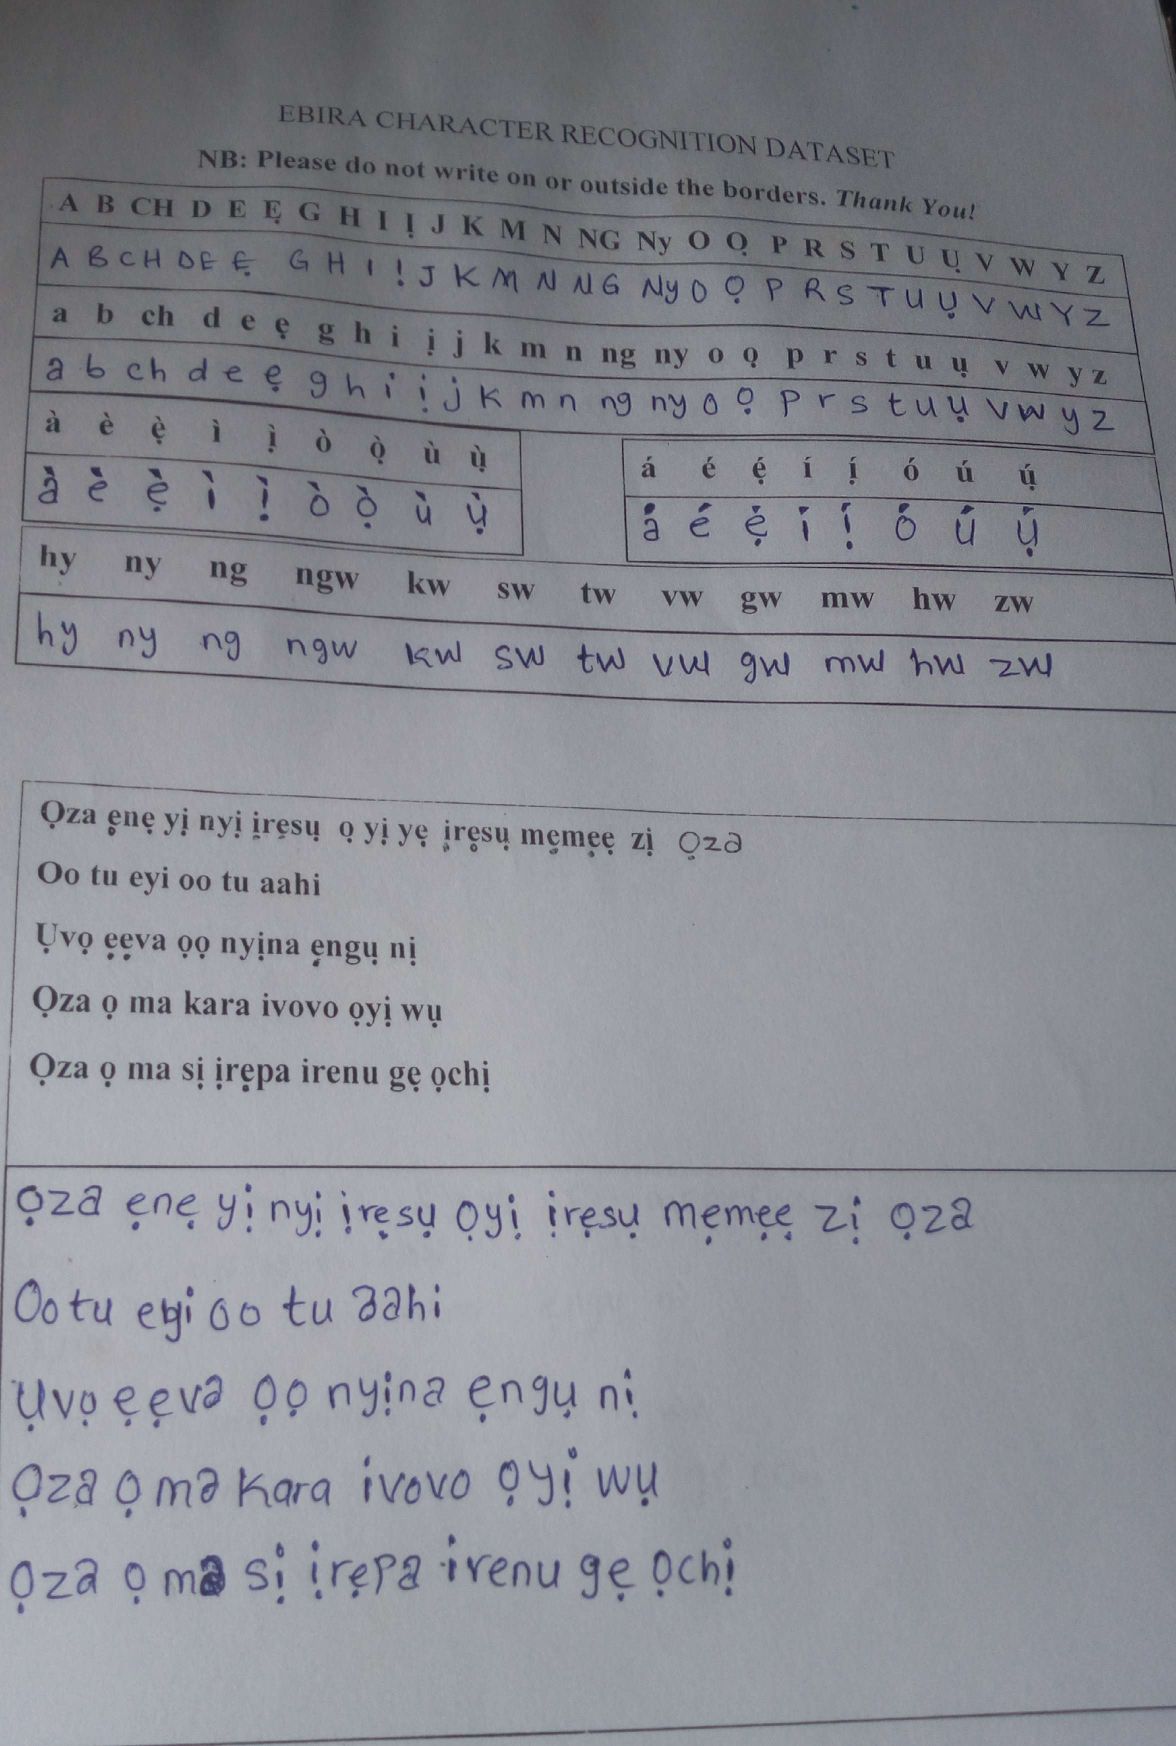 EBIRA CHARACTER RECOGNITION DATASET
NB: Please do not write on or outside the borders. Thank You!
A B CH D E Ẹ G H I Ị J K M N NG Ny O Ọ P R S T U Ụ V W Y Z
A B CH D E Ẹ G H I Ị J K M N NG Ny O Ọ P R S T U Ụ V W Y Z
a b ch d e ẹ g h i ị j k m n ng ny o ọ p r s t u ụ v w y z
a b ch d e ẹ g h i ị j k m n ng ny o ọ p r s t u ụ v w y z
à è ẹ̀ ì ị̀ ò ọ̀ ù ụ̀
à è ẹ̀ ì ị̀ ò ọ̀ ù ụ̀
á é ẹ́ í ị́ ó ú ụ́
á é ẹ́ í ị́ ó ú ụ́
hy ny ng ngw kw sw tw vw gw mw hw zw
hy ny ng ngw kw sw tw vw gw mw hw zw
Ọza ẹnẹ yị nyị ịrẹsụ ọ yị yẹ ịrẹsụ mẹmẹẹ zị Ọza
Oo tu eyi oo tu aahi
Ụvọ ẹẹva ọọ nyịna ẹngụ nị
Ọza ọ ma kara ivovo ọyị wụ
Ọza ọ ma sị ịrẹpa irenu gẹ ọchị
Ọza ẹnẹ yị nyị ịrẹsụ ọyị ịrẹsụ mẹmẹẹ zị ọza
Oo tu eyi oo tu aahi
Ụvọ ẹẹva ọọ nyịna ẹngụ nị
Ọza ọ ma kara ivovo ọyị wụ
Ọza ọ ma sị ịrẹpa irenu gẹ ọchị